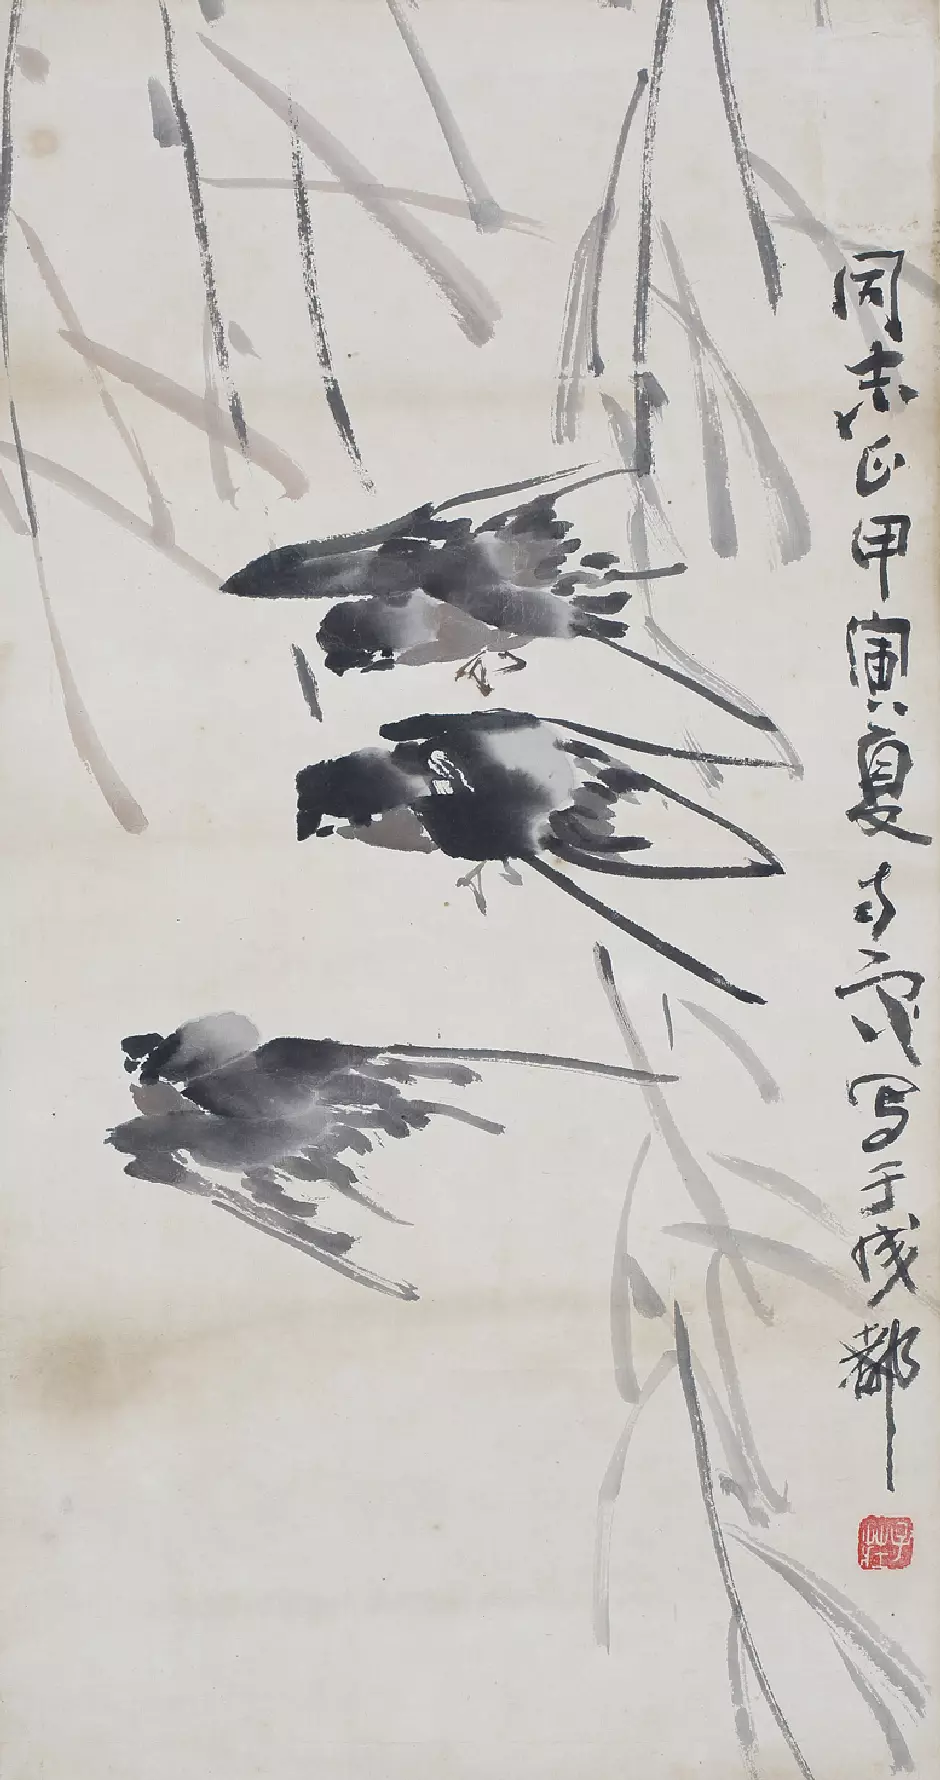 同志正甲寅夏石壶写于成都